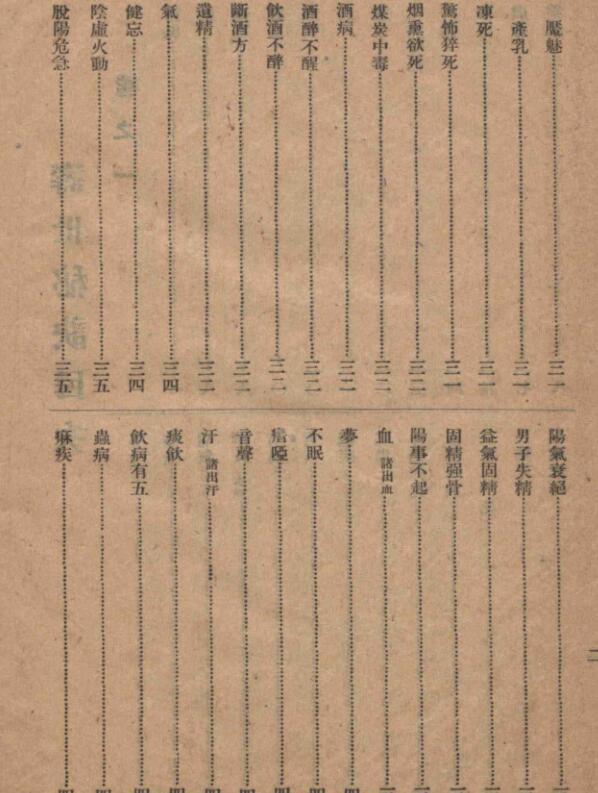 魘魅……三一
產乳……三一
凍死……三一
驚怖猝死……三一
烟熏欲死……三二
煤炭中毒……三二
酒病……三二
酒醉不醒……三二
飲酒不醉……三二
斷酒方……三二
遺精……三二
氣……三四
健忘……三四
陰虛火動……三五
脫陽危急……三五
陽氣衰絕
男子失精
益氣固精
固精强骨
陽事不起
血 諸出血
夢
不眠
瘖啞
音聲
汗 諸出汗
痰飲
飲病有五
蟲病
痳疾
二